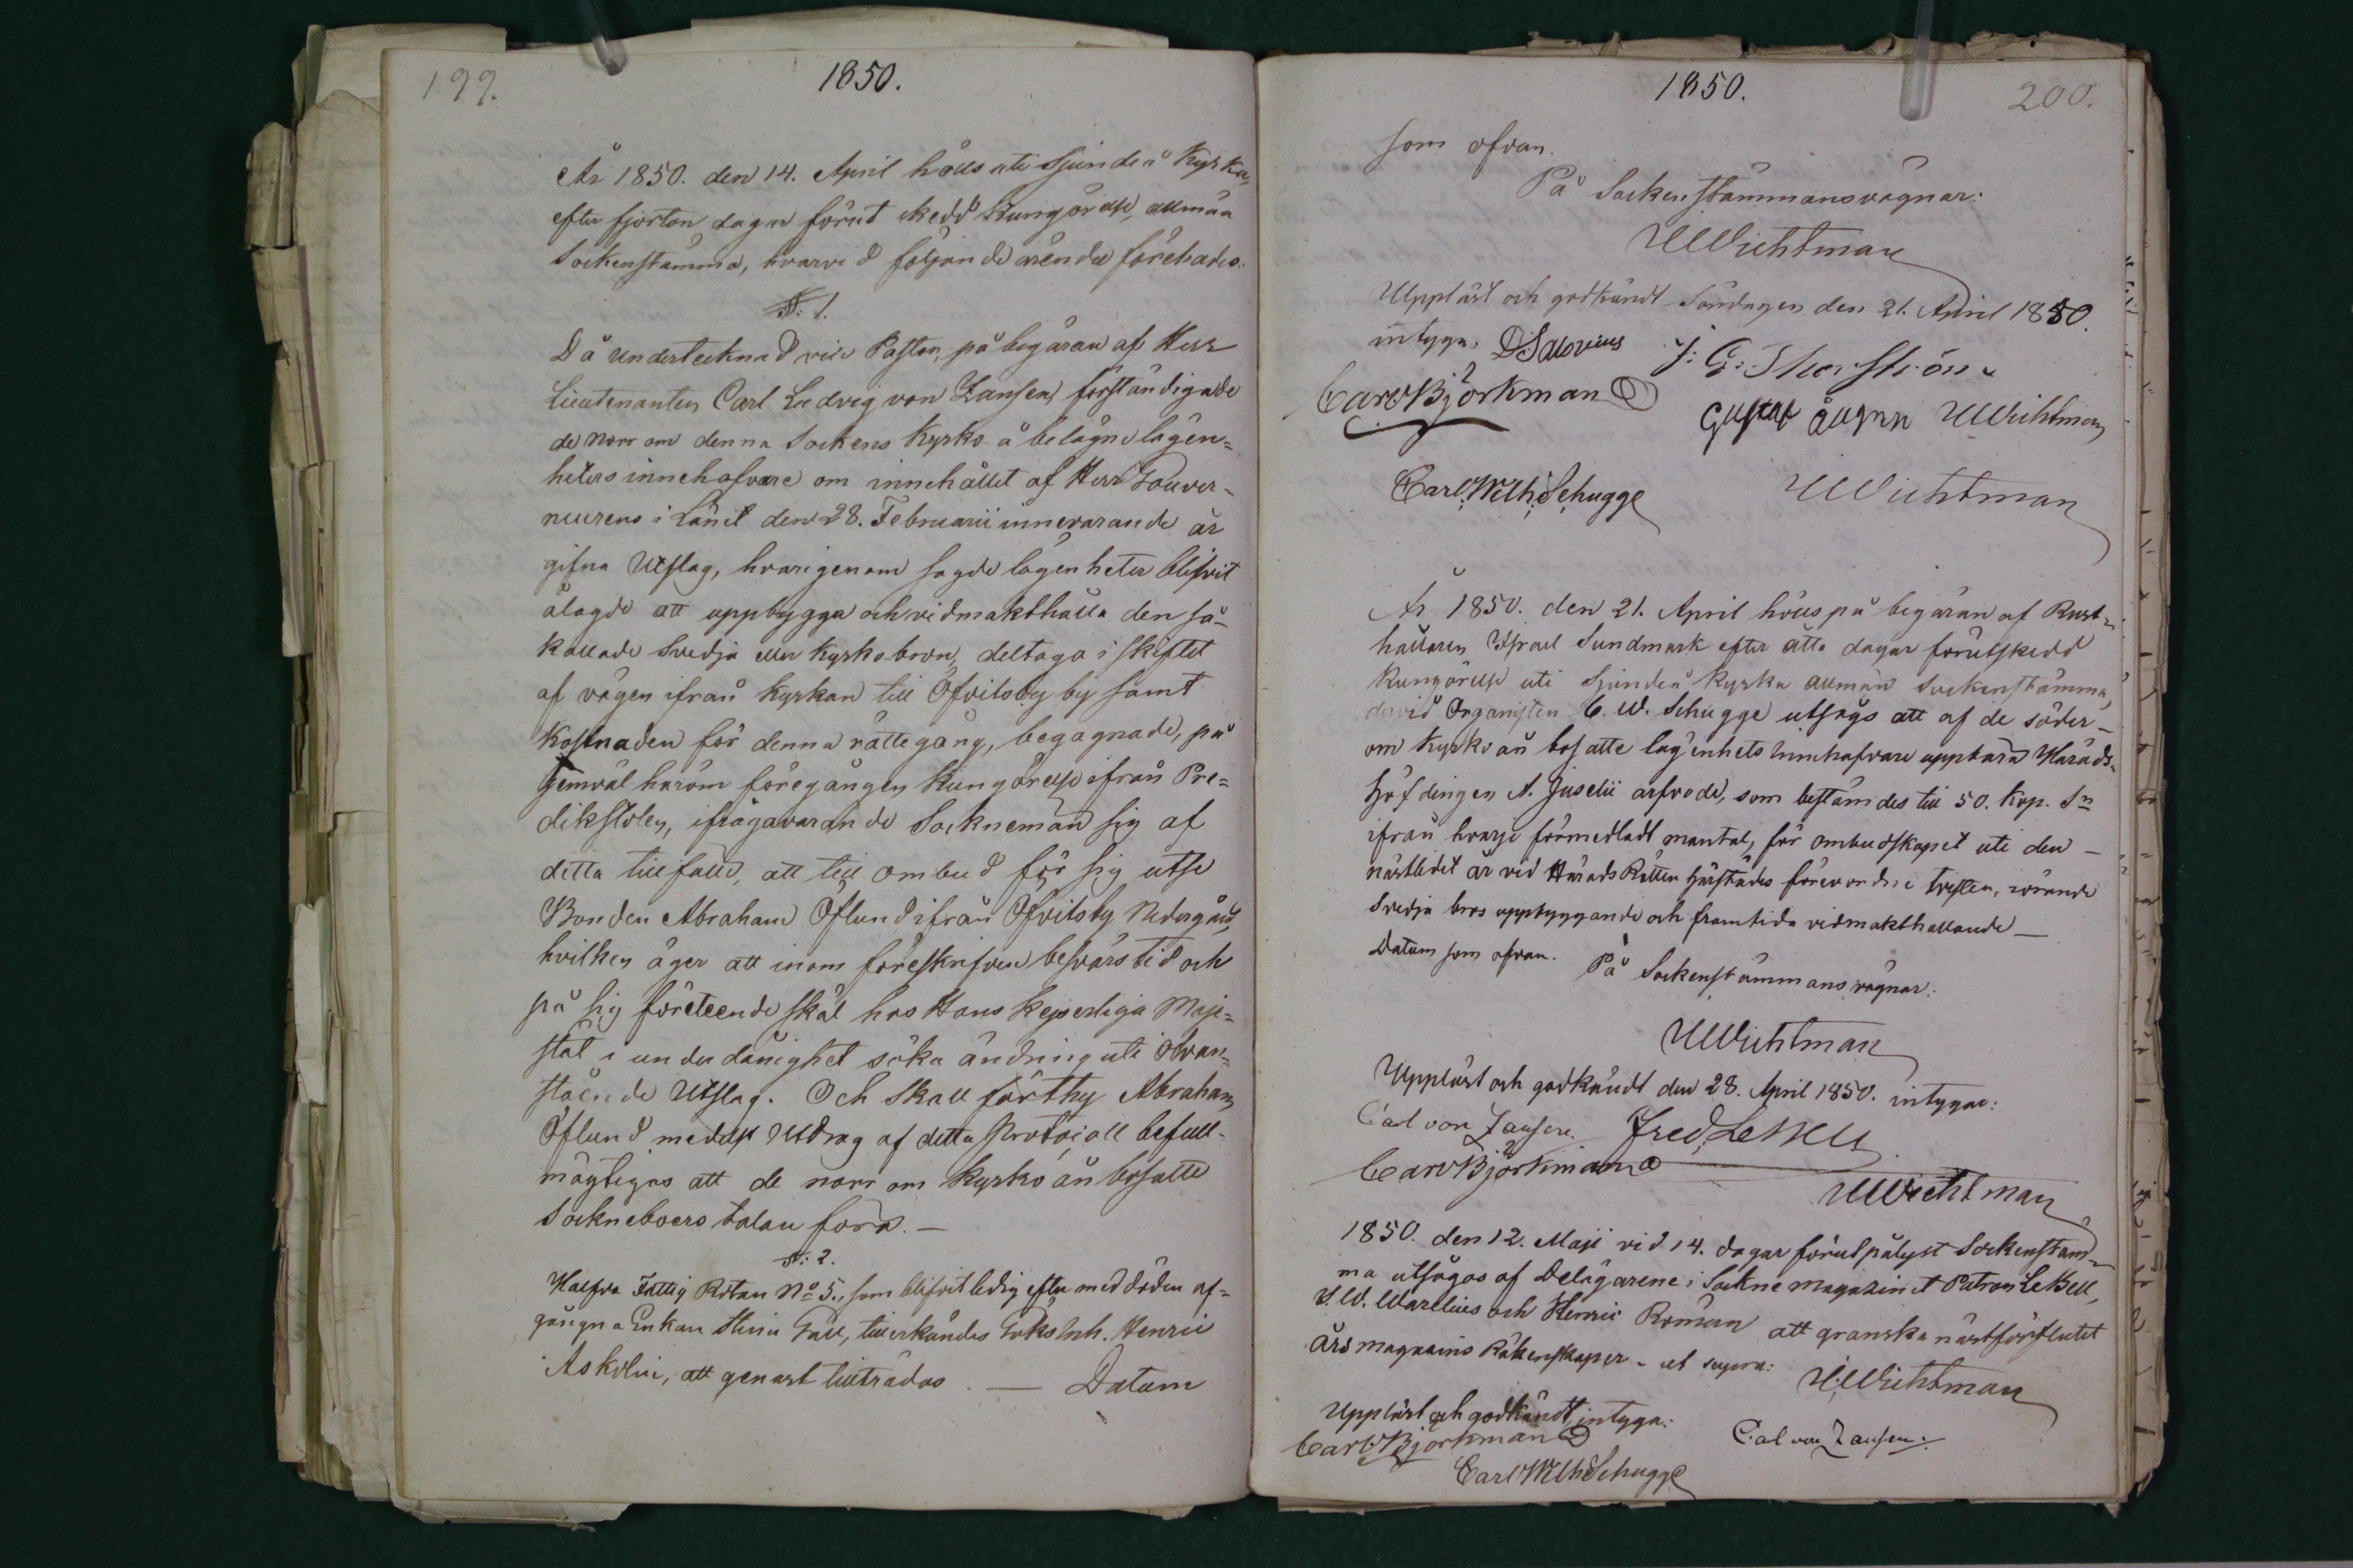 199.
1850.
År 1850. den 14. April hölls uti Sjundeå Kyrka,
efter fjorton dagar förut skedd Kungörelse, allmän
Sockenstämma, hvarvid följande ärender förehades.
§: 1.
Då undertecknad vice Pastor, på begäran af Herr
Lieutenanten Carl Ludvig von Zansen, förständigade
de norr om denna Sockens Kyrko å belägne lägen=
heters innehafvare om innehållet af Herr Gouver-
neurens i Länet den 28. Februarii innevarande år
gifna Utslag, hvarigenom sagde lägenheter blifvit
ålagde att uppbygga och vidmakthålla den så-
kallade Svedja eller Kyrkobron, deltaga i skiftet
af vägen ifrån Kyrkan till Öfvitsby by samt
Kostnaden för denna rättegång, begagnade, på
Gemväl härom föregången Kungörelse ifrån Pre=
dikstolen, ifrågavarande Socknemän sig af
detta tillfälle, att till ombud för sig utse
Bonden Abraham Öflund ifrån Öfvitsby Nedergård,
hvilken äger att inom föreskrifven besvärstid och
på sig företeende skäl hos Hans Kejserliga Maje=
stät i underdånighet söka ändring uti ofvan=
stående Utslag. Och skall förthy Abraham
Öflund medelst Utdrag af detta Protocoll befull-
mägtigas att de norr om Kyrko ån bosatte
Sockneboers talan föra.—
§: 2.
Halfva Fattig Rotan No 5., som blifvit ledig efter med döden af=
gångna Enkan Stina Gäll, tillerkändes Torks Inh. Henric
Askolin, att genast tillträdas. — Datum
1850.
200.
som ofvan.
På Sockenstämmans vägnar:
UWichtman
Uppläst och godkändt Söndagen den 21. April 1850.
intyga. DSalovius J: G: Thorström
Carl Björkman
Gustaf UWichtman
Carl Wilh: Schugge UWichtman
År 1850. den 21. April hölls på begäran af Rust=
hållaren Israel Sundmark efter åtta dagar förutskedd
Kungörelse uti Sjundeå Kyrka allmän Sockenstämma,
dervid Organisten C. W. Schugge utsågs att af de söder-
om Kyrko ån bosatte lägenhets innehafvare uppbära Härads=
höfdingen A. Juselii arfvode, som bestämdes till 50. Kop. Sr
ifrån hvarje förmedladt mantal, för ombudskapet uti den —
nästledet år vid Härads Rätten härstädes förevordne tvisten, rörande
Svedja bros uppbyggande och framtida vidmakthållande —
Datum som ofvan. På Sockenstämmans vägnar:
UWichtman
Uppläst och godkändt den 28. April 1850. intygar:
Carl von Zansen. Fred. LeBell
Carl Björkman
UWichtman
1850. den 12. Maji vid 14. dagar förut pålyst Sockenstäm=
ma utsågos af Delägarene i Sockne magazinet Patron LeBell,
J. W. Warelius och Henric Roman att granska nästförflutet
års magazins Räkenskaper. ut supra: UWichtman
Uppläst och godkändt, intyga:
Carl Björkman Carl von Zansen.
Carl Wilh Schugge